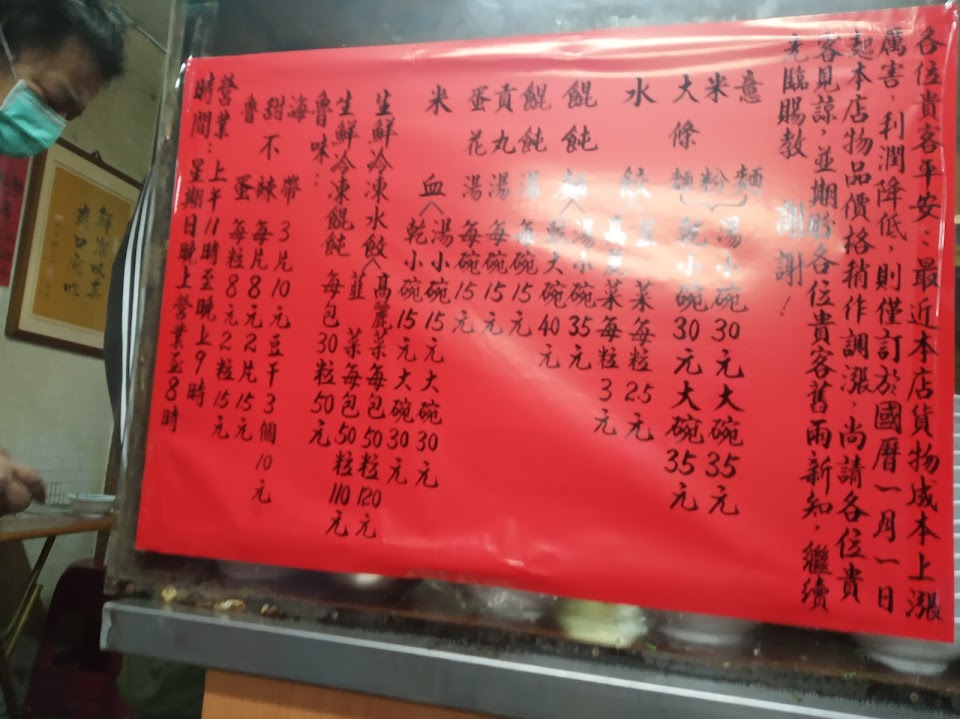 各位貴客平安 最近本店貨物成本上漲
厲害，利潤降低，則僅訂於國曆一月一日
起本店物品價格稍作調漲，尚請各位貴
客見諒，並期盼各位貴客舊雨新知，繼續
光臨賜教 謝謝！
意麵
米粉 湯小碗30元大碗35元
大條麵 乾小碗30元大碗35元
水餃 韮菜每粒2.5元
高麗菜每粒3元
餛飩麵 湯小碗35元
乾大碗40元
餛飩湯每碗15元
貢丸湯每碗15元
蛋花湯每碗15元
米血 湯小碗15元大碗30元
乾小碗15元大碗30元
生鮮冷凍水餃 高麗菜每包50粒120元
韮菜每包50粒110元
生鮮冷凍餛飩 每包30粒50元
魯味：
海帶3片10元豆干3個10元
甜不辣每片8元2片15元
魯蛋每粒8元2粒15元
營業時間：上午11時至晚上9時
星期日晚上營業至8時